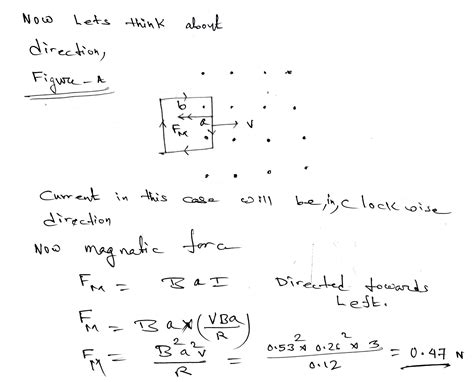 Now Lets think about
direction,
Figure - A
b
a
FM
V
Current in this case will be, in, Clockwise
direction
Now magnatic forc
FM = B a I Directed towards
Left.
FM = B a x (VBa/R)
FM = B²a²v/R = 0.53² x 0.26² x 3/0.12 = 0.47 N